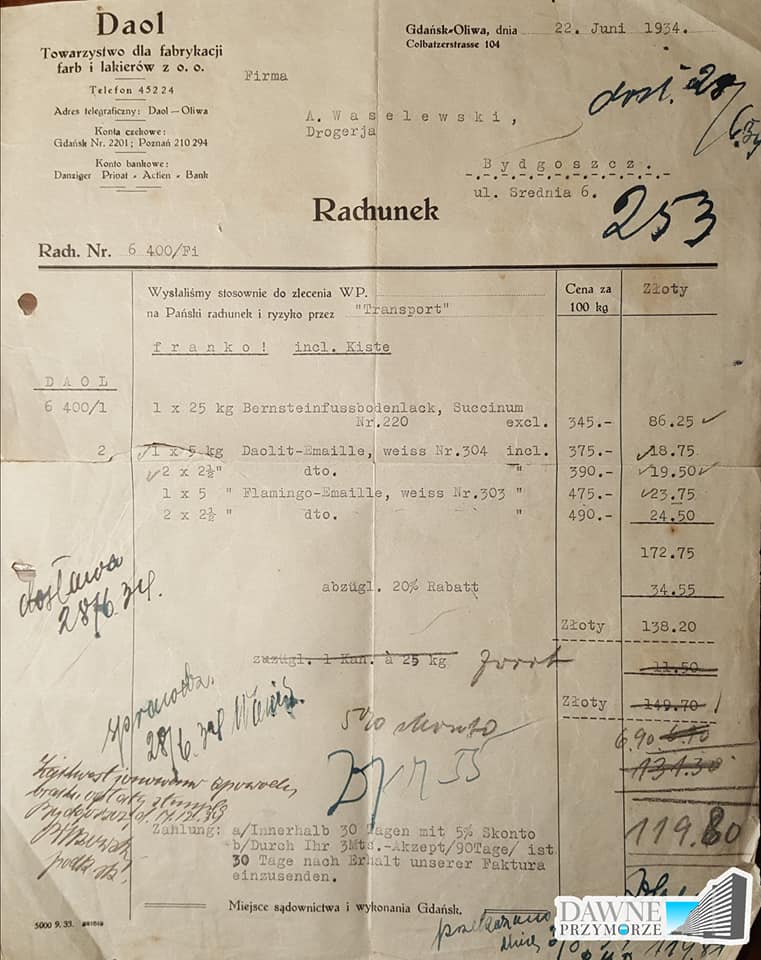 Daol
Towarzystwo dla fabrykacji
farb i lakierów z o. o.
Telefon 45224
Adres telegraficzny: Daol—Oliwa
Konta czekowe:
Gdańsk Nr. 2201; Poznań 210 294
Konto bankowe:
Danziger Privat - Actien - Bank
Gdańsk-Oliwa, dnia 22. Juni 1934.
Colbatzerstrasse 104
Firma
A. Waselewski,
Drogerja
Bydgoszcz.
ul. Srednia 6.
dost. 28/6.34
253
Rachunek
Rach. Nr. 6 400/Fi
Wysłaliśmy stosownie do zlecenia WP.
na Pański rachunek i ryzyko przez "Transport"
Cena za
100 kg
Złoty
franko! incl. Kiste
DAOL
6 400/1 1 x 25 kg Bernsteinfussbodenlack, Succinum
Nr.220 excl. 345.- 86.25
2, 1 x 5 kg Daolit-Emaille, weiss Nr.304 incl. 375.- 18.75
2 x 2½" dto. " 390.- 19.50
1 x 5 " Flamingo-Emaille, weiss Nr.303 " 475.- 23.75
2 x 2½ " dto. " 490.- 24.50
172.75
abzügl. 20% Rabatt 34.55
Złoty 138.20
zuzügl. 1 Kan. à 25 kg 11.50
Złoty 149.70
dostawa
28/6.34.
sprawdz.
28/6.34
5% skonto
6.90 6.10
131.30
119.80
Bydgoszcz d. 17.12.34
Zahlung: a/Innerhalb 30 Tagen mit 5% Skonto
b/Durch Ihr 3Mts.-Akzept/90Tage/ ist
30 Tage nach Erhalt unserer Faktura
einzusenden.
Miejsce sądownictwa i wykonania Gdańsk.
5000 9. 33.
przekazano
DAWNE
PRZYMORZE